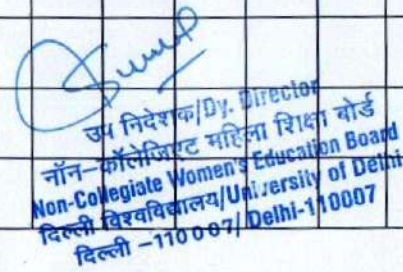 उप निदेशक/Dy. Director
नॉन-कॉलेजिएट महिला शिक्षा बोर्ड
Non-Collegiate Women's Education Board
दिल्ली विश्वविद्यालय/University of Delhi
दिल्ली -110007/ Delhi-110007